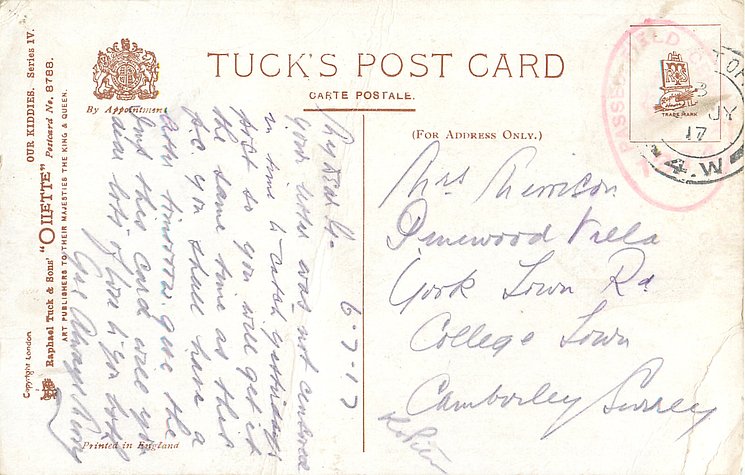 OUR KIDDIES. Series IV.
Raphael Tuck & Sons' "OILETTE" Postcard No. 8788.
ART PUBLISHERS TO THEIR MAJESTIES THE KING & QUEEN.
Copyright London
By Appointment
TUCK'S POST CARD
CARTE POSTALE.
(FOR ADDRESS ONLY.)
TRADE MARK
PASSED FIELD
3
JY
17
4.W
6-7-17
My Dear
your letter was not censored
in time to catch yesterdays
post so you will get it
the same time as this
P.C. you shall have a
letter tomorrow give the
kids this card will you
dear lots of love to you both
Yours Always
Mrs Merrison
Pinewood Villa
York Town Rd
College Town
Camberley Surrey
Printed in England